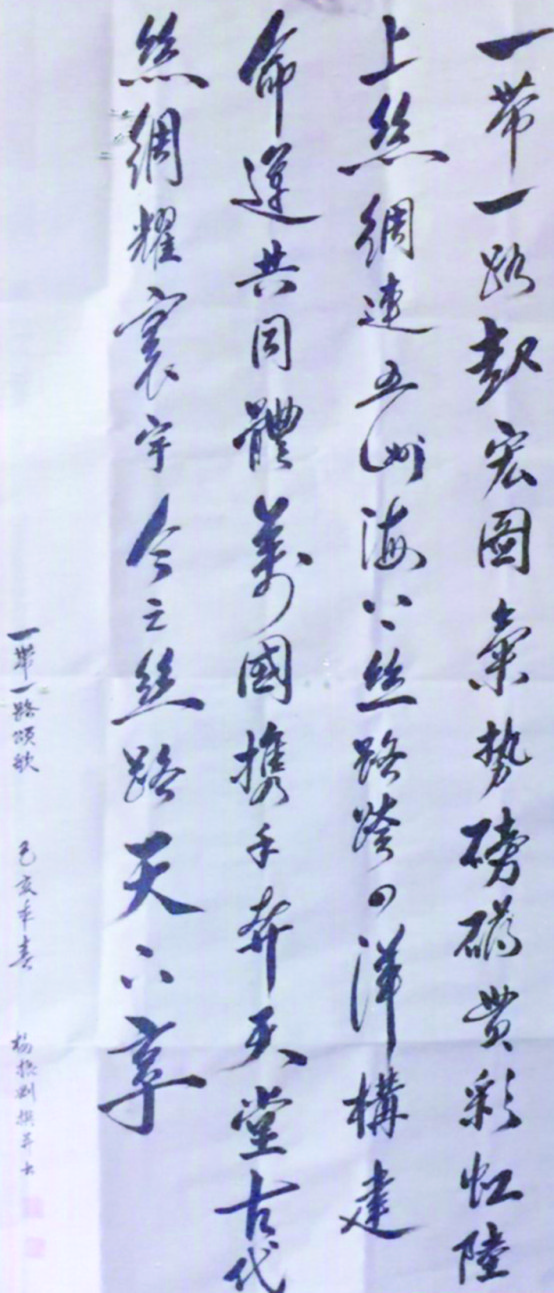 一帶一路起宏圖氣勢磅礴貫彩虹陸
上絲綢連五洲海上絲路跨四洋構建
命運共同體萬國攜手奔天堂古代
絲綢耀寰宇今之絲路天下享
一帶一路頌歌 己亥年春 楊振撰并书